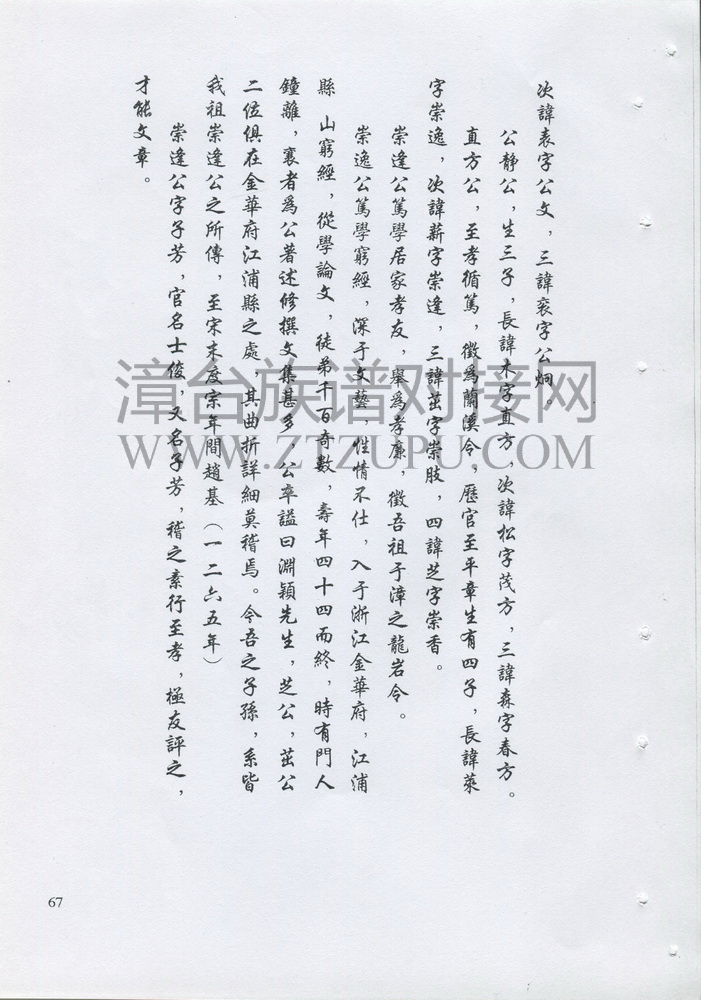 次諱表字公文，三諱袞字公炯。
公靜公，生三子，長諱木字直方，次諱松字茂方，三諱森字春方。
直方公，至孝循篤，徵為蘭溪令，歷官至平章生有四子，長諱萊
字崇逸，次諱薪字崇逢，三諱茁字崇肢，四諱芝字崇香。
崇逢公篤學居家孝友，舉為孝廉，徵吾祖于漳之龍岩令。
崇逸公篤學窮經，深于文藝，性情不仕，入于浙江金華府，江浦
縣 山窮經，從學論文，徒弟千百奇數，壽年四十四而終，時有門人
鐘離，襄者為公著述修撰文集甚多 公卒謚曰淵穎先生，芝公，茁公
二位俱在金華府江浦縣之處，其曲折詳細莫稽焉。今吾之子孫，系皆
我祖崇逢公之所傳，至宋末度宗年間趙基（一二六五年）
崇逢公字子芳，官名士俊，又名子芳，稽之素行至孝，極友評之，
才能文章。
漳台族谱对接网
WWW.ZTZUPU.COM
67